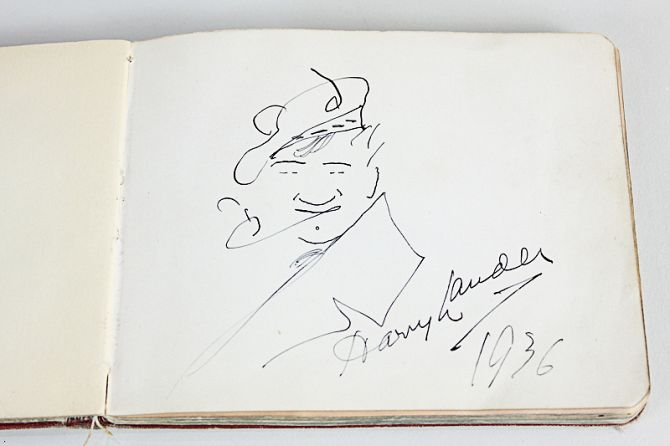 Harry Lauder
1936